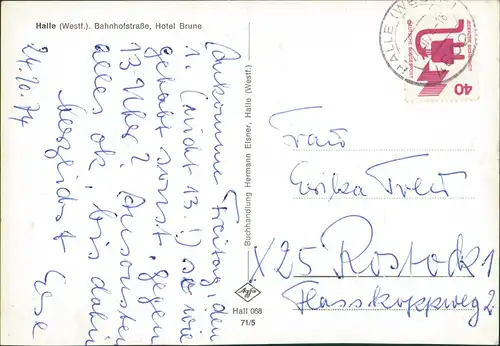 Halle (Westf.). Bahnhofstraße, Hotel Brune
24.10.74
Ankomme Freitag, den
1. (nicht 13.!) so wie
gehabt sonst, gegen
13 Uhr? Ansonsten
alles ok, bis dahin
Herzlichst
Buchhandlung Hermann Eisner, Halle (Westf.)
Agfa
Hall 068
71/5
HALLE (WESTF
DEUTSCHE BUNDESPOST
40
Frau
Erika Treu
X25 Rostock 1
Flasskoppweg 2